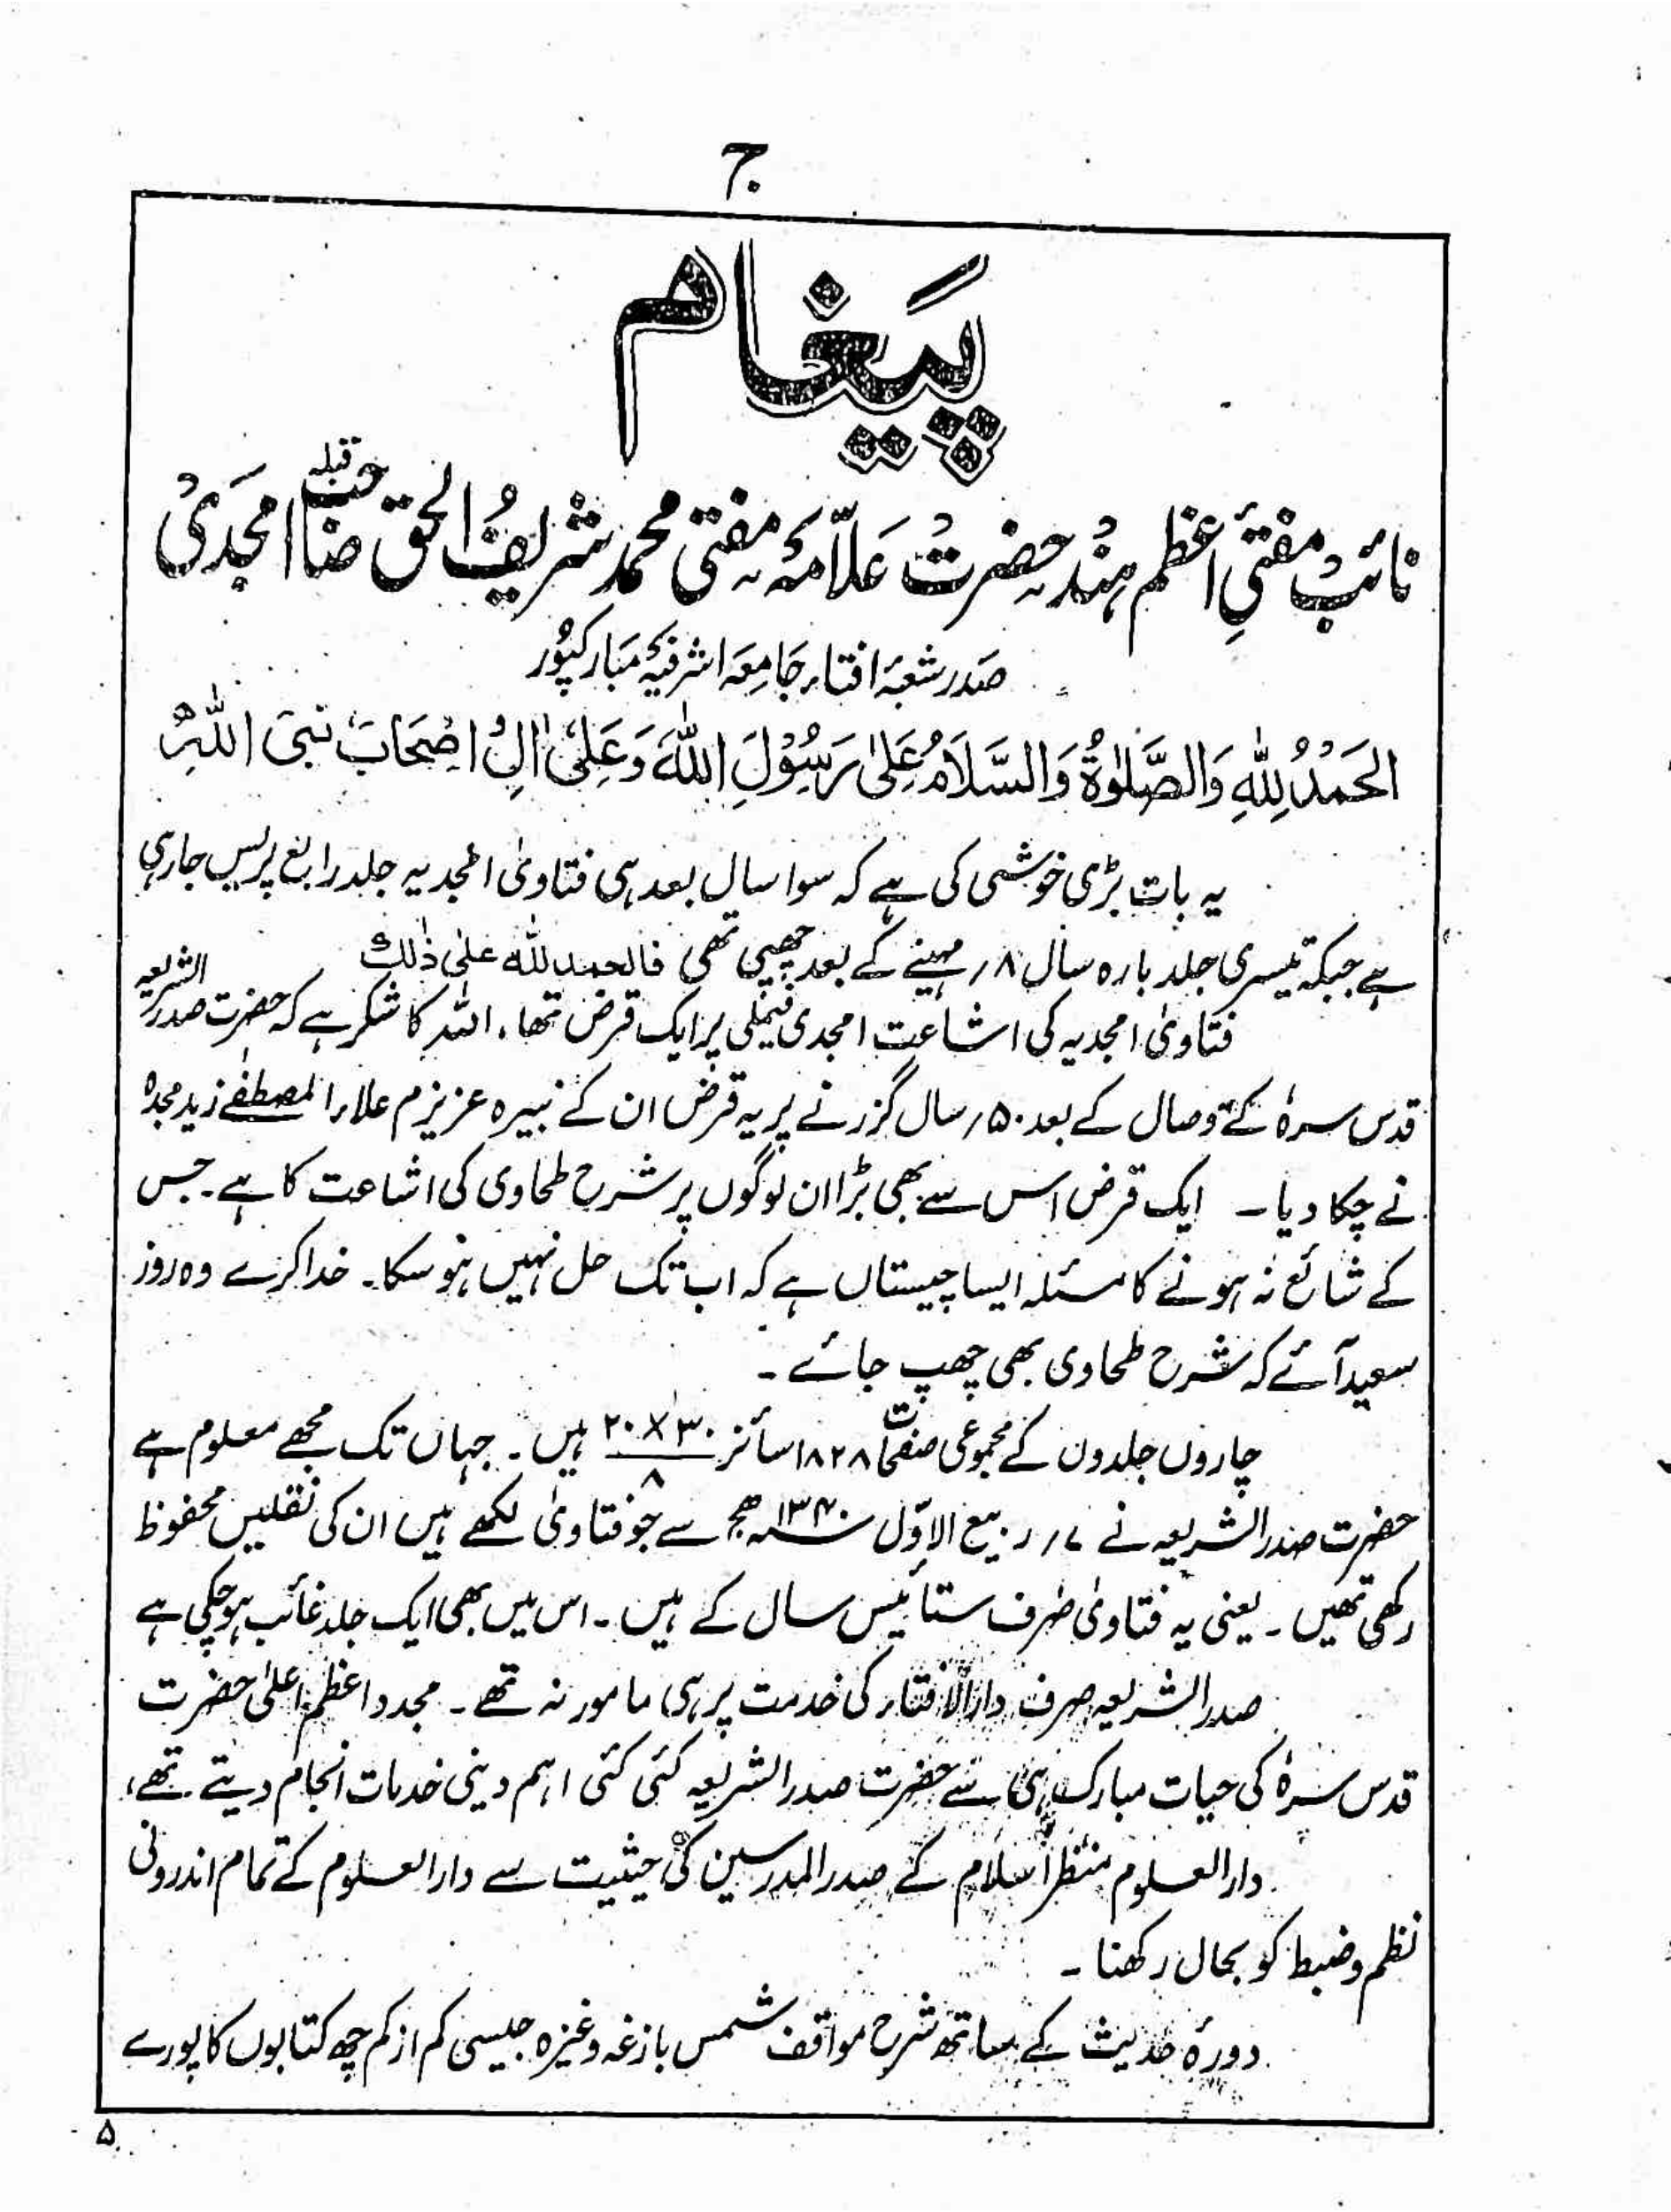 ج
پیغام
نائب مفتیِ اعظم ہند حضرت علّامہ مفتی محمد شریف الحق صاحب قبلہ امجدی
صدر شعبۂ افتاء جامعہ اشرفیہ مبارکپور
الحَمْدُ لِلّٰهِ وَالصَّلٰوةُ وَالسَّلَامُ عَلیٰ رَسُوْلَ اللّٰهَ وَعَلیٰ اٰلِ اصْحَابَ نبیَ اللّٰہِ
یہ بات بڑی خوشی کی ہے کہ سوا سال بعد ہی فتاویٰ امجدیہ جلد رابع پریس جارہی
ہے جبکہ تیسری جلد بارہ سال ۸؍ مہینے کے بعد چھپی تھی فالحمد للّٰہ علیٰ ذٰلک
فتاویٰ امجدیہ کی اشاعت امجدی فیملی پر ایک قرض تھا، اللہ کا شکر ہے کہ حضرت صدر الشریعہ
قدس سرہٗ کے وصال کے بعد ۵۰؍ سال گزرنے پر یہ قرض ان کے نبیرہ عزیزم علاء المصطفےٰ زید مجدہ
نے چکا دیا ۔ ایک قرض اس سے بھی بڑا ان لوگوں پر شرح طحاوی کی اشاعت کا ہے۔ جس
کے شائع نہ ہونے کا مسئلہ ایسا چیستاں ہے کہ اب تک حل نہیں ہو سکا۔ خدا کرے وہ روز
سعید آئے کہ شرح طحاوی بھی چھپ جائے ۔
چاروں جلدوں کے مجموعی صفحات ۱۸۲۸ سائز ۲۰×۳۰/۸ ہیں۔ جہاں تک مجھے معلوم ہے
حضرت صدر الشریعہ نے ۷؍ ربیع الاوّل ۱۳۴۰ھج سے جو فتاویٰ لکھے ہیں ان کی نقلیں محفوظ
رکھی تھیں ۔ یعنی یہ فتاویٰ صرف ستائیس سال کے ہیں ۔ اس میں بھی ایک جلد غائب ہوچکی ہے
صدر الشریعہ صرف دارالافتاء کی خدمت پر ہی مامور نہ تھے ۔ مجدد اعظم اعلیٰ حضرت
قدس سرہٗ کی حیات مبارک ہی سے حضرت صدر الشریعہ کئی کئی اہم دینی خدمات انجام دیتے تھے،
دارالعلوم منظر اسلام کے صدر المدرسین کی حیثیت سے دارالعلوم کے تمام اندرونی
نظم و ضبط کو بحال رکھنا ۔
دورۂ حدیث کے ساتھ شرح مواقف شمس بازغہ وغیرہ جیسی کم از کم چھ کتابوں کا پورے
۵